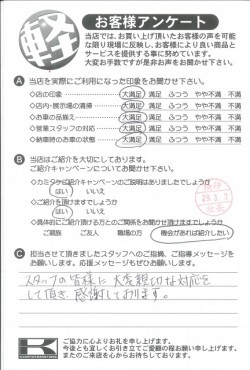 軽
お客様アンケート
当店では、お買い上げ頂いたお客様の声を可能
な限り現場に反映し、お客様により良い商品と
サービスを提供する事に努めています。
大変お手数ですが是非お声をお聞かせ下さい。
A 当店を実際にご利用になった印象をお聞かせ下さい。
◇店の印象 大満足 満足 ふつう やや不満 不満
◇店内・展示場の清掃 大満足 満足 ふつう やや不満 不満
◇お車の品揃え 大満足 満足 ふつう やや不満 不満
◇営業スタッフの対応 大満足 満足 ふつう やや不満 不満
◇納車時のお車の状態 大満足 満足 ふつう やや不満 不満
B 当店はご紹介を大切にしております。
ご紹介キャンペーンについてお聞かせ下さい。
◇カミタケご紹介キャンペーンのご説明はありましたでしょうか
はい いいえ
◇ご紹介を頂けますでしょうか
はい いいえ
◇具体的にご紹介頂ける方とのご関係をお聞かせ頂けますでしょうか
ご親族 ご友人 職場の方 機会があれば紹介したい
C 担当させて頂きましたスタッフへのご指摘、ご指導メッセージを
お願いします。応援メッセージもぜひお願いします。
スタッフの皆様に大変親切な対応を
して頂き、感謝しております。
ご協力に心よりお礼を申し上げます。
今後とも宜しくお引き立てご愛顧の程お願い申し上げます。
またのご来店を心からお待ちしております。